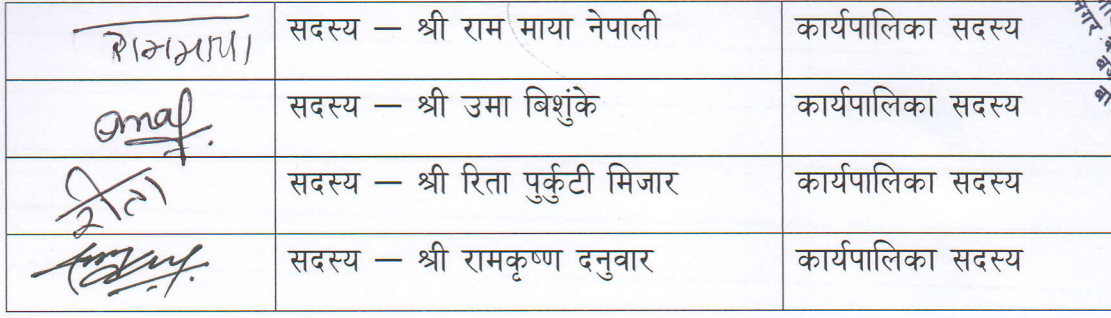 राममाया सदस्य — श्री राम माया नेपाली कार्यपालिका सदस्य
सदस्य — श्री उमा बिशुंके कार्यपालिका सदस्य
रीता सदस्य — श्री रिता पुर्कुटी मिजार कार्यपालिका सदस्य
सदस्य — श्री रामकृष्ण दनुवार कार्यपालिका सदस्य
नगर